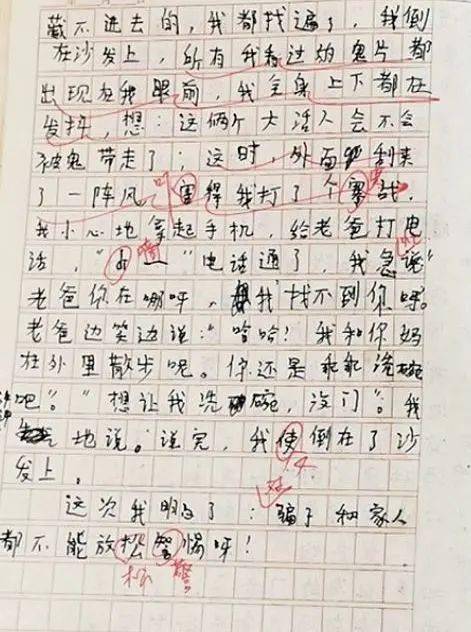 藏不进去的,我都找遍了,我倒
在沙发上,所有我看过的鬼片都
出现在我眼前,我全身上下都在
发抖,想:这俩个大活人会不会
被鬼带走了;这时,外面刮来
了一阵风,害得我打了个寒战,
我小心地拿起手机,给老爸打电
话,"电话通了,我急说"
老爸你在哪呀,我找不到你呀。
老爸边笑边说:"哈哈!我和你妈
在外里散步呢。你还是乖乖洗碗
吧"。"想让我洗碗,没门"。我
地说。说完,我使倒在了沙
发上。
这次我明白了:骗子和家人
都不能放松警惕呀!
松 警